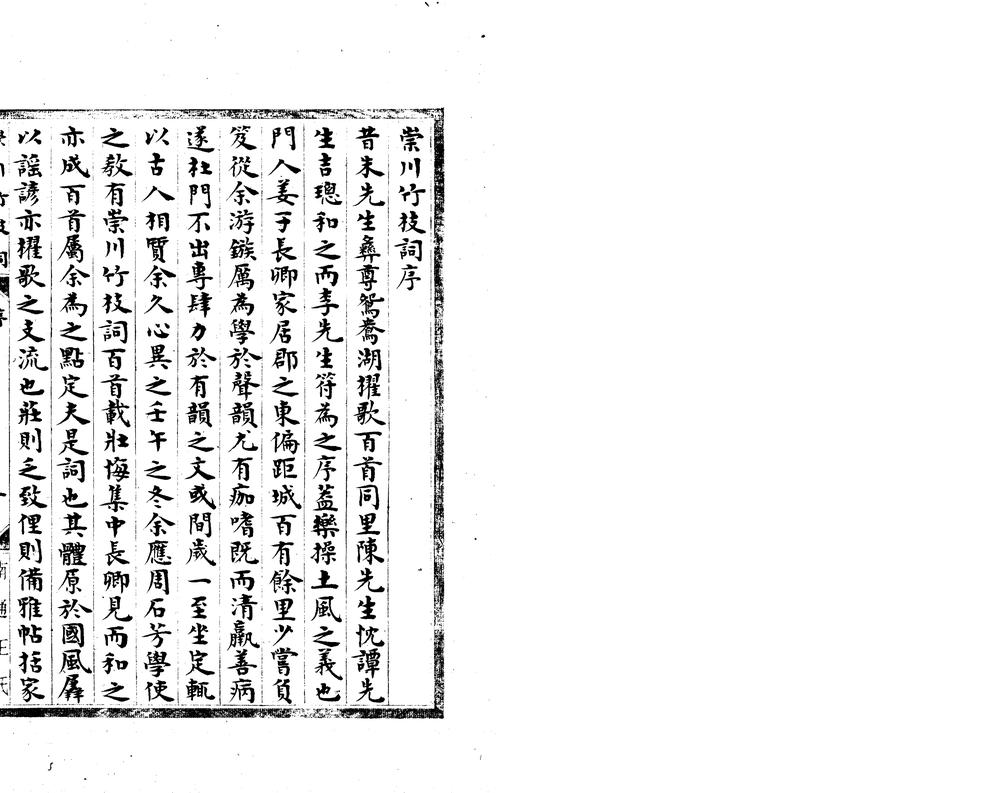 崇川竹枝詞序
昔朱先生彝尊鴛鴦湖擢歌百首同里陳先生忱譚先
生吉璁和之而李先生符為之序蓋樂操土風之義也
門人姜子長卿家居郡之東偏距城百有餘里少嘗負
笈從余游鏃厲為學於聲韻尤有痂嗜既而清羸善病
遂杜門不出專肆力於有韻之文或間歲一至坐定輒
以古人相質余久心異之壬午之冬余應周石芳學使
之教有崇川竹枝詞百首載壯悔集中長卿見而和之
亦成百首屬余為之點定夫是詞也其體原於國風羼
以謡諺亦擢歌之支流也莊則乏致俚則備雅帖括家
川竹枝詞
序
一
南通王氏